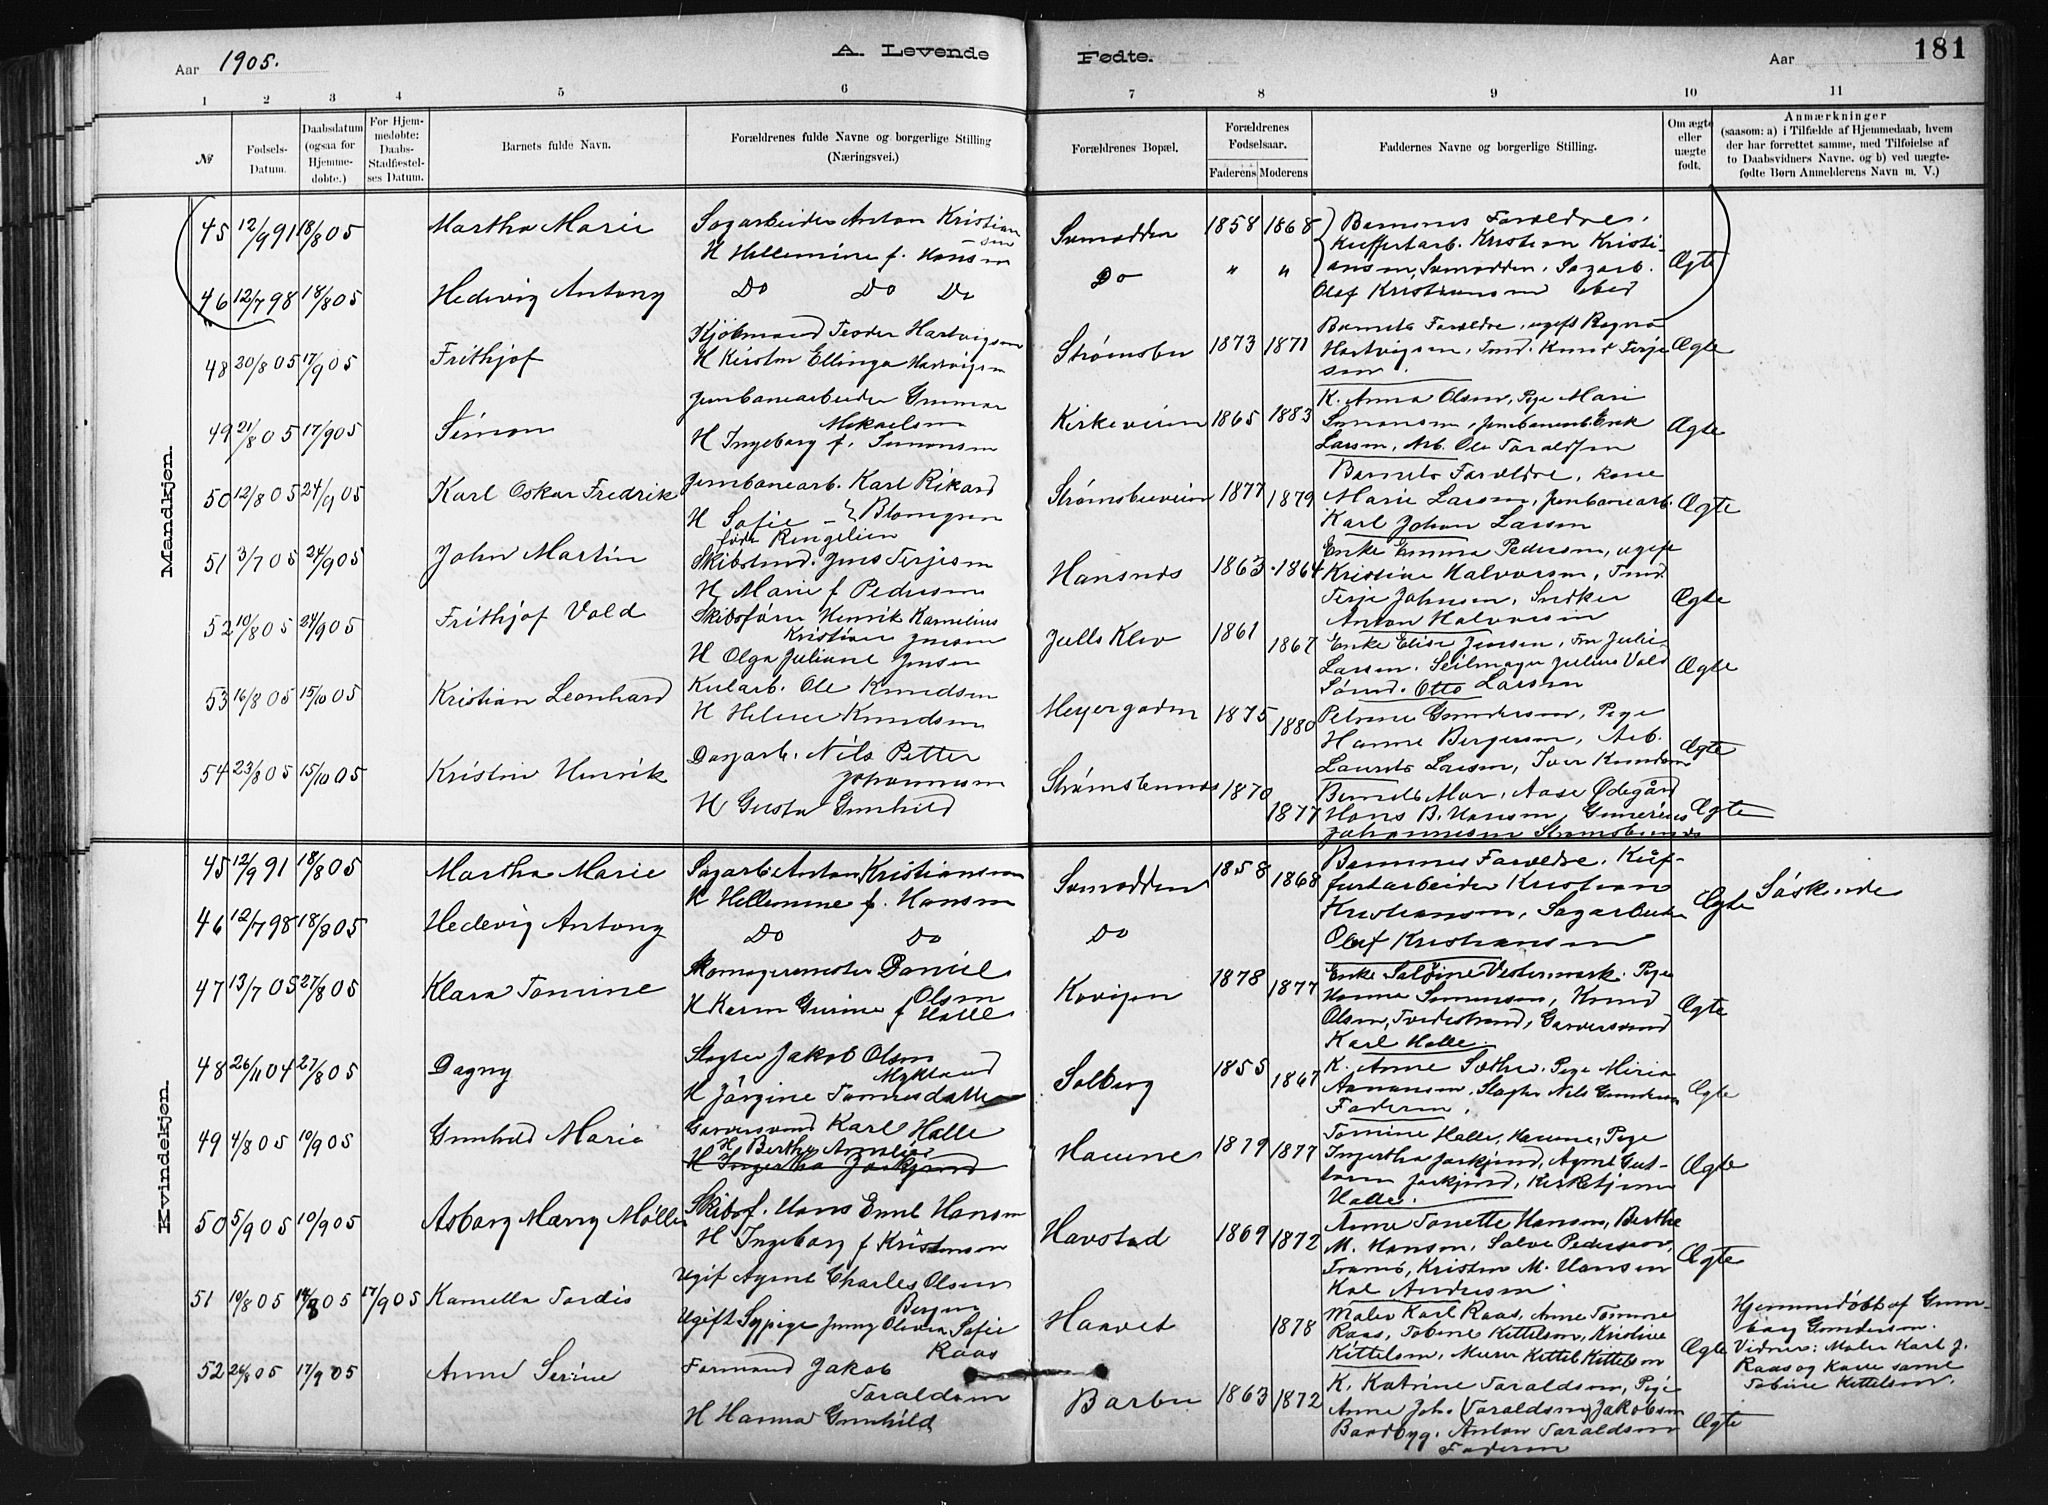 Aar 1905.
A. Levende Fødte.
Aar
181
1 2 3 4 5 6 7 8 9 10 11
№
Fødsels-Datum.
Daabsdatum (ogsaa for Hjemme-døbte.)
For Hjem-medøbte: Daabs-Stadfæstel-ses Datum.
Barnets fulde Navn.
Forældrenes fulde Navne og borgerlige Stilling (Næringsvei.)
Forældrenes Bopæl.
Forældrenes Fødselsaar.
Faderens Moderens
Faddernes Navne og borgerlige Stilling.
Om ægte eller uægte født.
Anmærkninger
(saasom: a) i Tilfælde af Hjemmedaab, hvem
der har forrettet samme, med Tilføielse af
to Daabsvidners Navne. og b) ved uægte-
fødte Børn Anmelderens Navn m. V.)
Mandkjøn.
45 12/9 91 18/8 05 Martha Marie
Sagarbeider Anton Kristian
sen
H Hellemine f. Hansen
Songødden 1858 1868
Barnenes Forældre.
Kuffertarb. Kristian Kristi-
ansen, Sagarb.
Olaf Kristiansen ibid
Ægte
46 12/7 98 18/8 05 Hedevig Antony
Do Do Do
Do " "
48 20/8 05 17/9 05 Frithjof
Kjøbmand Teodor Hartvigsen
H Kirsten Ellinga Hartvigsen
Strømsbu 1873 1871
Barnets Forældre, ugift Ragna
Hartvigsen, Tmd. Knut Terje
sen.
Ægte
49 21/8 05 17/9 05 Simon
Jernbanearbeider Gunnar
Mikaelsen
H Ingeborg f. Simonsen
Kirkeveien 1865 1883
K. Anna Olsen, Pige Mari
Simonsen, Jernbanearb. Erik
Larsen, Arb. Ole Taraldsen
Ægte
50 12/8 05 24/9 05 Karl Oskar Fredrik
Jernbanearb. Karl Rikard
H Sofie - Blomgren
født Ringelien
Strømsbuveien 1877 1879
Barnets Forældre, Kone
Marie Larsen, Jernbanearb.
Karl Johan Larsen
Ægte
51 3/7 05 24/9 05 John Martin
Skibstmd. Jens Terjesen
H Marie f Pedersen
Hansnes 1863 1864
Enke Emma Pedersen, ugift
Kristine Halvorsen, Tmd.
Terje Johnsen, Snedker
Anton Halvorsen
Ægte
52 10/8 05 24/9 05 Frithjof Vold
Skibsfører Henrik Kornelius
Kristian Jensen
H Olga Juliane Jensen
Julls Klev 1861 1867
Enke Elise Jensen, Fru Julie
Larsen. Seilmager Julius Vold
Sømd. Otto Larsen
Ægte
53 16/8 05 15/10 05 Kristian Leonhard
Kularb. Ole Knudsen
H Helene Knudsen
Meyergaden 1875 1880
Petrine Gundersen, Pige
Hanne Bergersen, Arb.
Laurits Larsen, Iver Knudsen
Ægte
54 23/8 05 15/10 05 Kristen Henrik
Dagarb. Nils Petter
Johannesen
H Gusta Gunhild
Strømsbunæs 1870 1877
Barnets Mor, Aase Ødegård
Hans B. Hansen, Gunerius
Johannesen Strømsbunæs
Ægte
Kvindekjøn.
45 12/9 91 18/8 05 Martha Marie
Sagarb. Anton Kristiansen
H Hellemine f. Hansen
Songødden 1858 1868
Barnenes Forældre. Kuf-
fertarbeider Kristian
Kristiansen, Sagarbeider
Olaf Kristiansen
Ægte Søskende
46 12/7 98 18/8 05 Hedevig Antony
Do Do
Do
47 13/7 05 27/8 05 Klara Tomine
Skomagermester Daniel
Olsen
H Karen Gurine f Halle
Kavijen 1878 1877
Enke Vestermark. Pige
Hanna Simonsen, Knud
Olsen, Tvedestrand, Garversvend
Karl Halle.
Ægte
48 26/11 04 27/8 05 Dagny
Slagter Jakob Olsen
Mykland
H Jörgine Tomesdatter
Solberg 1855 1867
K. Anne Sæther. Pige Miria
Aamansen, Slagter Nils Gundersen
Faderen.
Ægte
49 4/8 05 10/9 05 Gunhild Marie
Garversvend Karl Halle
H. Berthe Amalie
Havene 1879 1877
Tomine Halle, Havene, Pige
Ingertha Jorkjend, Agent Gut-
torm Jorkjend, Kirketjener
Halle.
Ægte
50 5/9 05 10/9 05 Asborg Marry Møller
Skibsf. Hans Emil Hansen
H Ingeborg f Kristensen
Havstad 1869 1872
Anne Tonette Hansen, Berthe
M. Hansen, Salve Pedersen,
Tromø, Kristen M. Hansen
Kal. Andersen
Ægte
51 10/8 05 14/8 05 17/9 05 Kamilla Tordis
Ugif Agent Charles Olsen
Bergen
Ugift Sypige Jenny Olivia Sofie
Raas
Haavet 1878
Maler Karl Raas, Anne Tomine
Raas, Tobine Kittelsen, Kristine
Kittelsen, Murer Kittel Kittelsen
Ægte
Hjemmedøbt af Gun-
borg Gundersen.
Vidner: Maler Karl J.
Raas og Kone samt
Tobine Kittelsen.
52 26/8 05 17/9 05 Anne Serine
Formand Jakob
Taraldsen
H Hanna Gunhild
Barbu 1863 1872
K. Katrine Taraldsen, Pige
Anne Joh. (Taraldsen) Jakobsen
Baadbyg. Anton Taraldsen
Faderen
Ægte